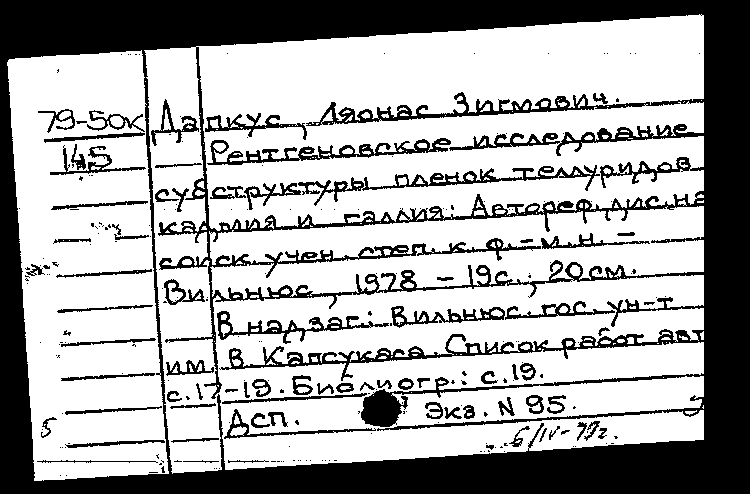 79-50к Дапкус, Ляонас Зигмович.
145 Рентгеновское исследование
субструктуры пленок теллуридов
кадмия и галлия: Автореф. дис. на
соиск. учен. степ. к. ф.-м. н. -
Вильнюс, 1978 - 19с.; 20см.
В надзаг.: Вильнюс. гос. ун-т
им. В. Капсукаса. Список работ авт
с.17-19. Библиогр.: с.19.
5 Дсп. Экз. N 95.
6/IV-79г.